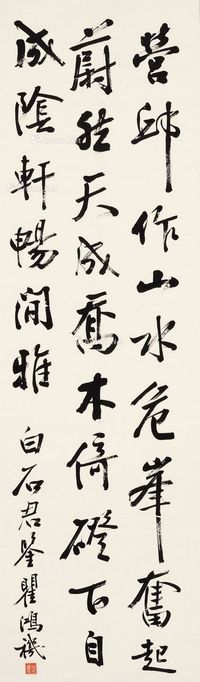 營邱作山水危峯奮起
蔚然天成喬木倚磴下自
成陰軒暢閒雅
白石君鉴瞿鴻禨